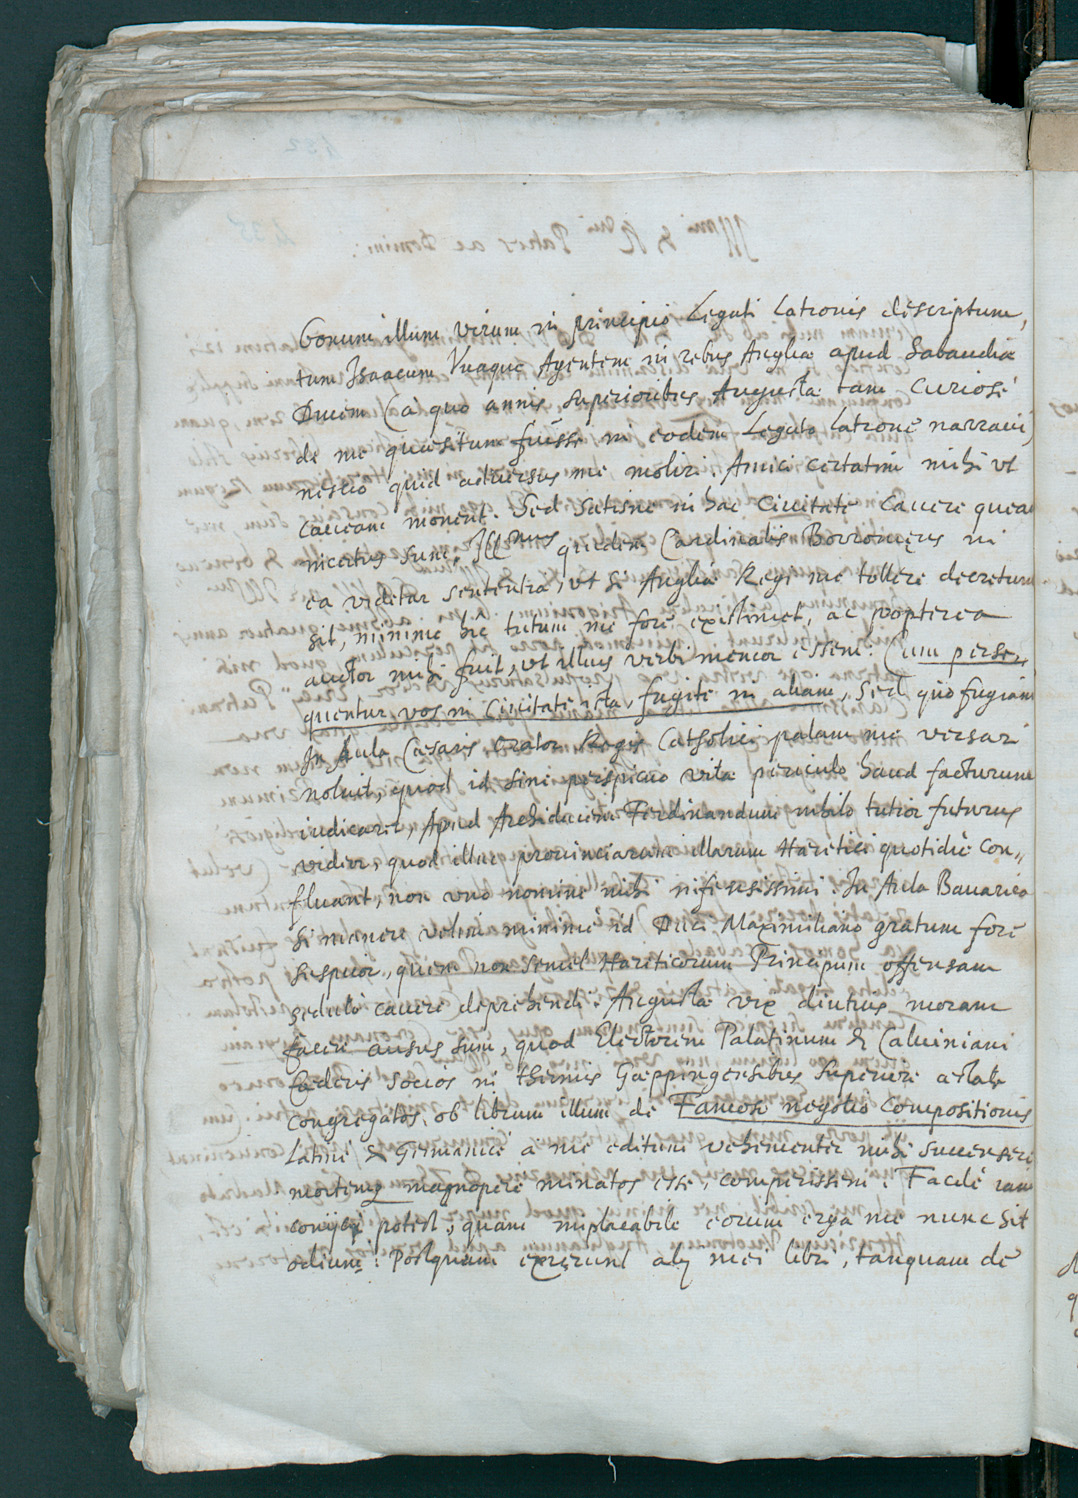 bonum illum virum in principio Legati Latronis descriptum,
tum Isaacum Vuaque Agentem in rebus Angliæ apud Sabaudiæ
Ducem (a quo annis superioribus Augustæ tam curiosè
de me quæsitum fuisse in eodem Legato latrone narraui)
nescio quid aduersus me moliri Amici certatim mihi ut
caueam monent. Sed satisne in hac Ciuitate cauere queam
incertus sum. Ill.mus quidem Cardinalis Borromęus in
ea videtur sententia, ut si Angliæ Regi me tollere decretum
sit, minime hic tutum me fore existimet, ac propterea
auctor mihi fuit, ut illius verbi memor essem: Cum perse„
quentur vos in Ciuitate ista, fugite in aliam, Sed quò fugiam
In Aula Cæsaris Orator Regis Catholici palam me versari
noluit, quod id sine perspicuo vitæ periculo haud facturum
iudicaret, Apud Archiducem Ferdinandum nihilo tutior futurus
videor, quod illuc prouinciarum illarum Hæretici quotidiè con„
fluant, non vno nomine mihi infensissimi. In Aula Bauarica
si manere velim minime id Duci Maximiliano gratum fore
suspicor, quem non semel Hæreticorum Principum offensam
sedulò cauere deprehendi. Augustæ vix diutius moram
facere ausus sum, quod Electorem Palatinum & Caluiniani
fœderis socios in thermis Gœppingensibus superiore æstate
congregatos, ob librum illum de Famoso negotio compositionis
Latine & Germanicè a me editum vehementer mihi succensere
mortemq̃ magnopere minatos esse, comperissem. Facilè iam
conijci potest, quam implacabile eorum erga me nunc sit
odium: Postquam exierunt alij mei libri, tanquam de